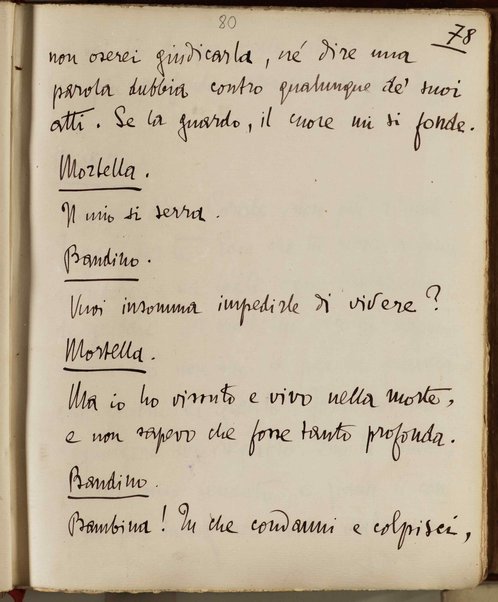 80
78
non oserei giudicarla, né dire una
parola dubbia contro qualunque de' suoi
atti. Se la guardo, il cuore mi si fonde.
Mortella.
Il mio si serra.
Bandino.
Vuoi insomma impedirle di vivere?
Mortella.
Ma io ho vissuto e vivo nella morte,
e non sapevo che fosse tanto profonda.
Bandino.
Bambina! Tu che condanni e colpisci,